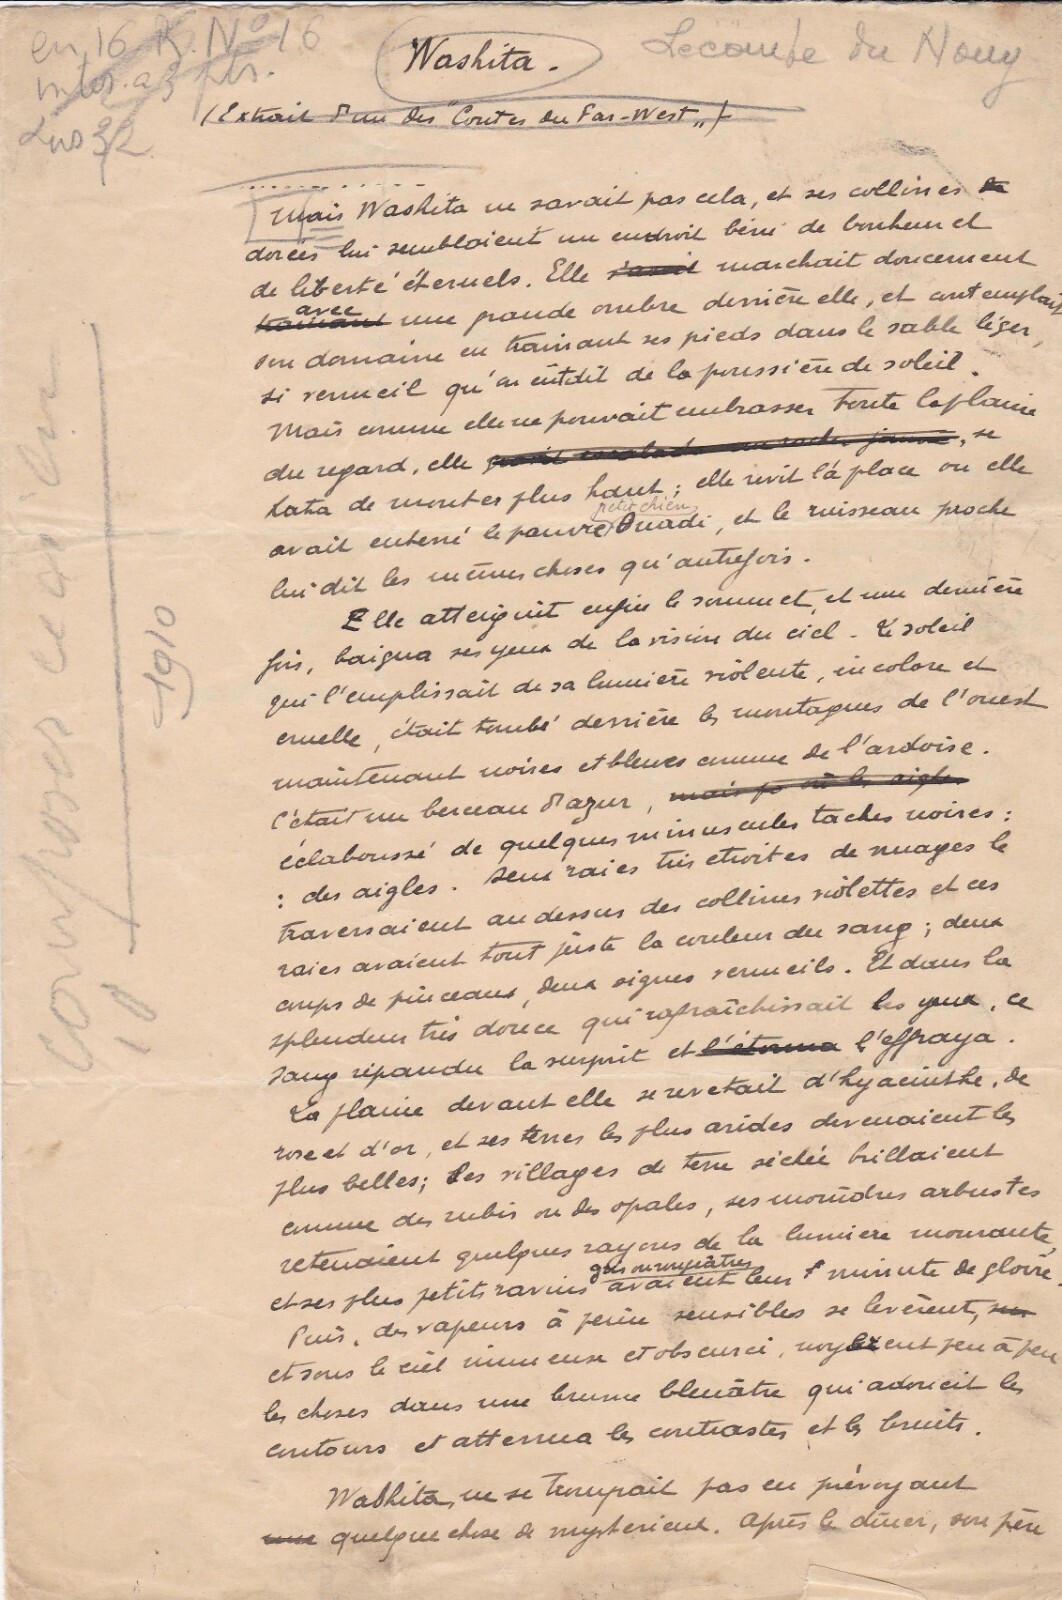 en 16 R. N° 16
Lecomte du Nouy
Washita.
inter. a 3 pts.
(Extrait d'un des "Contes du Far-West")
Lus 3/2
Mais Washita ne savait pas cela, et ses collines
dorées lui semblaient un endroit béni de bonheur et
de liberté éternels. Elle marchait doucement
avec
trainant une grande ombre derrière elle, et contemplait
son domaine en trainant ses pieds dans le sable léger,
si vermeil qu'on eût dit de la poussière de soleil.
Mais comme elle ne pouvait embrasser toute la plaine
du regard, elle avait escaladé un rocher jauni, se
hata de monter plus haut ; elle revit la place ou elle
petit chien
avait enterré le pauvre Ouadi, et le ruisseau proche
lui dit les mêmes choses qu'autrefois.
Elle atteignit enfin le sommet, et une dernière
fois, baigna ses yeux de la vision du ciel. Le soleil
qui l'emplissait de sa lumière violente, incolore et
cruelle, était tombé derrière les montagnes de l'ouest
maintenant noires et bleues comme de l'ardoise.
C'était un berceau d'azur, mais où les aigles
éclaboussé de quelques minuscules taches noires :
: des aigles. Deux raies très etroites de nuages le
traversaient au dessus des collines violettes et ces
raies avaient tout juste la couleur du sang ; deux
coups de pinceaux, deux signes vermeils. Et dans la
splendeur très douce qui rafraîchissait les yeux, ce
sang répandu la surprit et l'étonna l'effraya.
La plaine devant elle se revetait d'hyacinthe, de
rose et d'or, et ses terres les plus arides devenaient les
plus belles ; les villages de terre séchée brillaient
comme des rubis ou des opales, ses moindres arbustes
retenaient quelques rayons de la lumiere mourante,
et ses plus petits ravins avaient leur minute de gloire.
Puis, des vapeurs à peine sensibles se levèrent, sur
et sous le ciel immense et obscurci, noyèrent peu à peu
les choses dans une brume bleuâtre qui adoucit les
contours et attenua les contrastes et les bruits.
Washita, ne se trompait pas en prévoyant
une quelque chose de mysterieux. Après le dîner, son père
composer ce d
10
1910